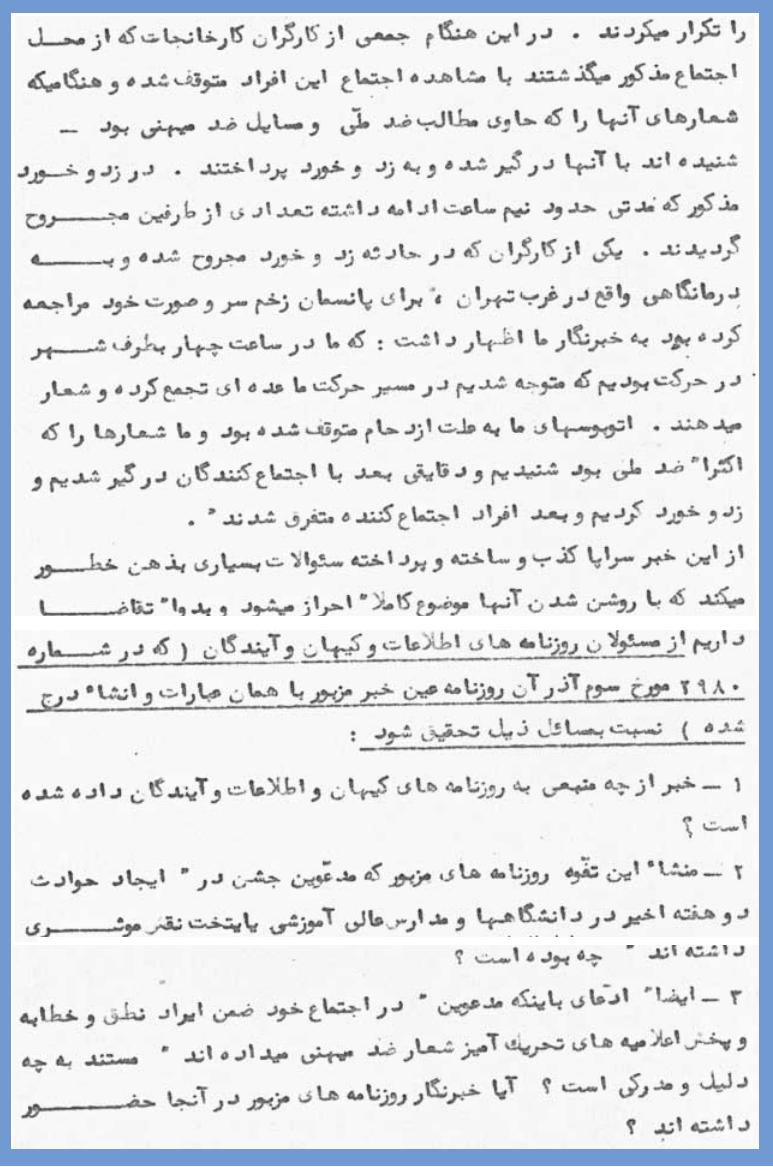 را تکرار میکردند . در این هنگام جمعی از کارگران کارخانجات که از محــل
اجتماع مذکور میگذشتند با مشاهده اجتماع این افراد متوقف شده و هنگامیکه
شعارهای آنها را که حاوی مطالب ضد ملّی و مسایل ضد میهنی بود –
شنیده اند با آنها درگیر شده و به زد و خورد پرداختند . در زد و خــورد
مذکور که مدتی حدود نیم ساعت ادامه داشته تعدادی از طرفین مجـــروح
گردیدند . یکی از کارگران که در حادثه زد و خورد مجروح شده و بـــه
درمانگاهی واقع در غرب تهران ، برای پانسمان زخم سر و صورت خود مراجعه
کرده بود به خبرنگار ما اظهار داشت : که ما در ساعت چهار بطرف شـــهر
در حرکت بودیم که متوجه شدیم در مسیر حرکت ما عده ای تجمع کرده و شعار
میدهند . اتوبوسهای ما به علت ازدحام متوقف شده بود و ما شعارها را که
اکثرا" ضد ملی بود شنیدیم و دقایقی بعد با اجتماع کنندگان درگیر شدیم و
زد و خورد کردیم و بعد افراد اجتماع کننده متفرق شدند " .
از این خبر سراپا کذب و ساخته و پرداخته سئوالات بسیاری بذهن خطــور
میکند که با روشن شدن آنها موضوع کاملا" احراز میشود و بدوا" تقاضـــا
داریم از مسئولان روزنامه های اطلاعات و کیهان و آیندگان ( که در شـــماره
۲۹۸۰ مورخ سوم آذر آن روزنامه عین خبر مزبور با همان عبارات و انشاء درج
شده ) نسبت بمسائل ذیل تحقیق شود :
۱ – خبر از چه منبعی به روزنامه های کیهان و اطلاعات و آیندگان داده شده
است ؟
۲ – منشاء این تفّوه روزنامه های مزبور که مدعّوین جشن در " ایجاد حوادث
دو هفته اخیر در دانشگاهها و مدارس عالی آموزشی پایتخت نقش موثـــری
داشته اند " چه بوده است ؟
۳ – ایضا" ادّعای باینکه مدعوین " در اجتماع خود ضمن ایراد نطق و خطابه
و پخش اعلامیه های تحریک آمیز شعار ضد میهنی میداده اند " مستند به چه
دلیل و مدرکی است ؟ آیا خبرنگار روزنامه های مزبور در آنجا حضـــور
داشته اند ؟